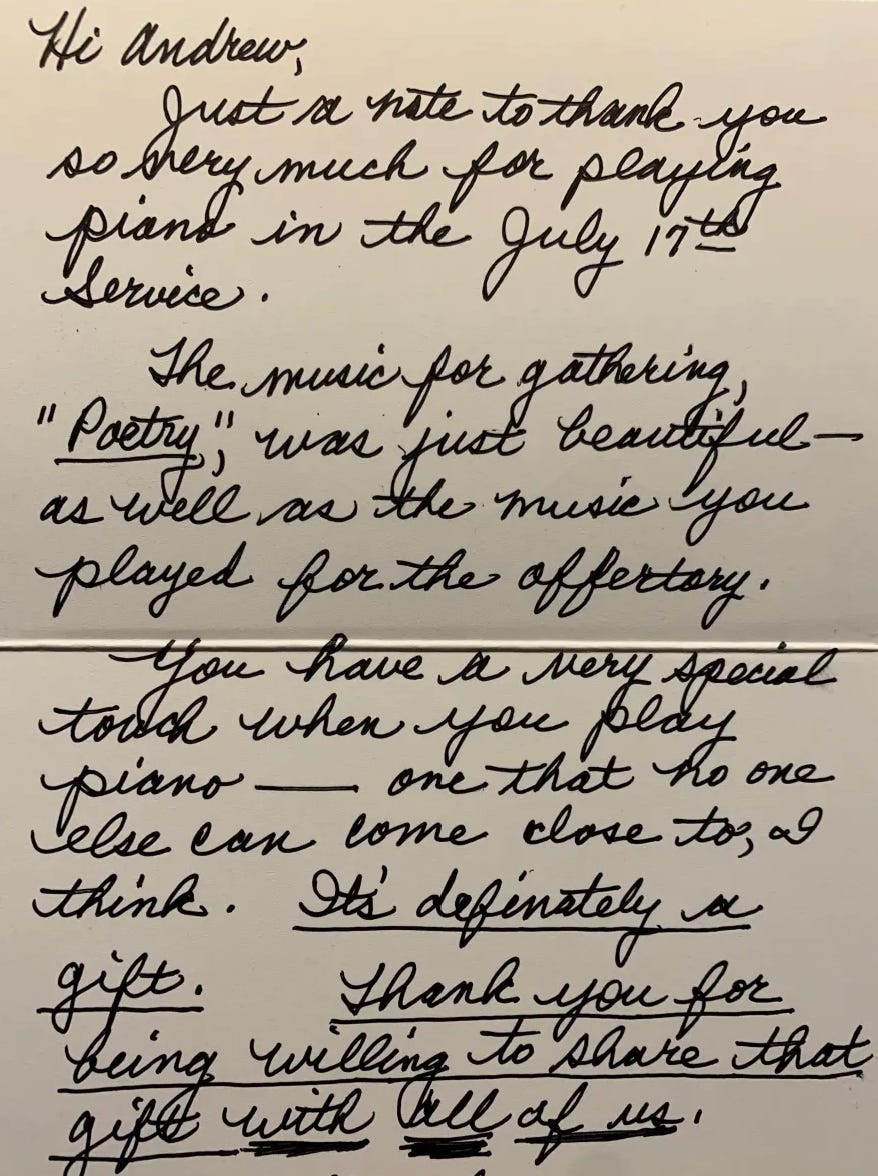 Hi Andrew,
Just a note to thank you
so very much for playing
piano in the July 17th
Service.
The music for gathering,
"Poetry", was just beautiful—
as well as the music you
played for the offertory.
You have a very special
touch when you play
piano — one that no one
else can come close to, I
think. It's definately a
gift. Thank you for
being willing to share that
gift with all of us.